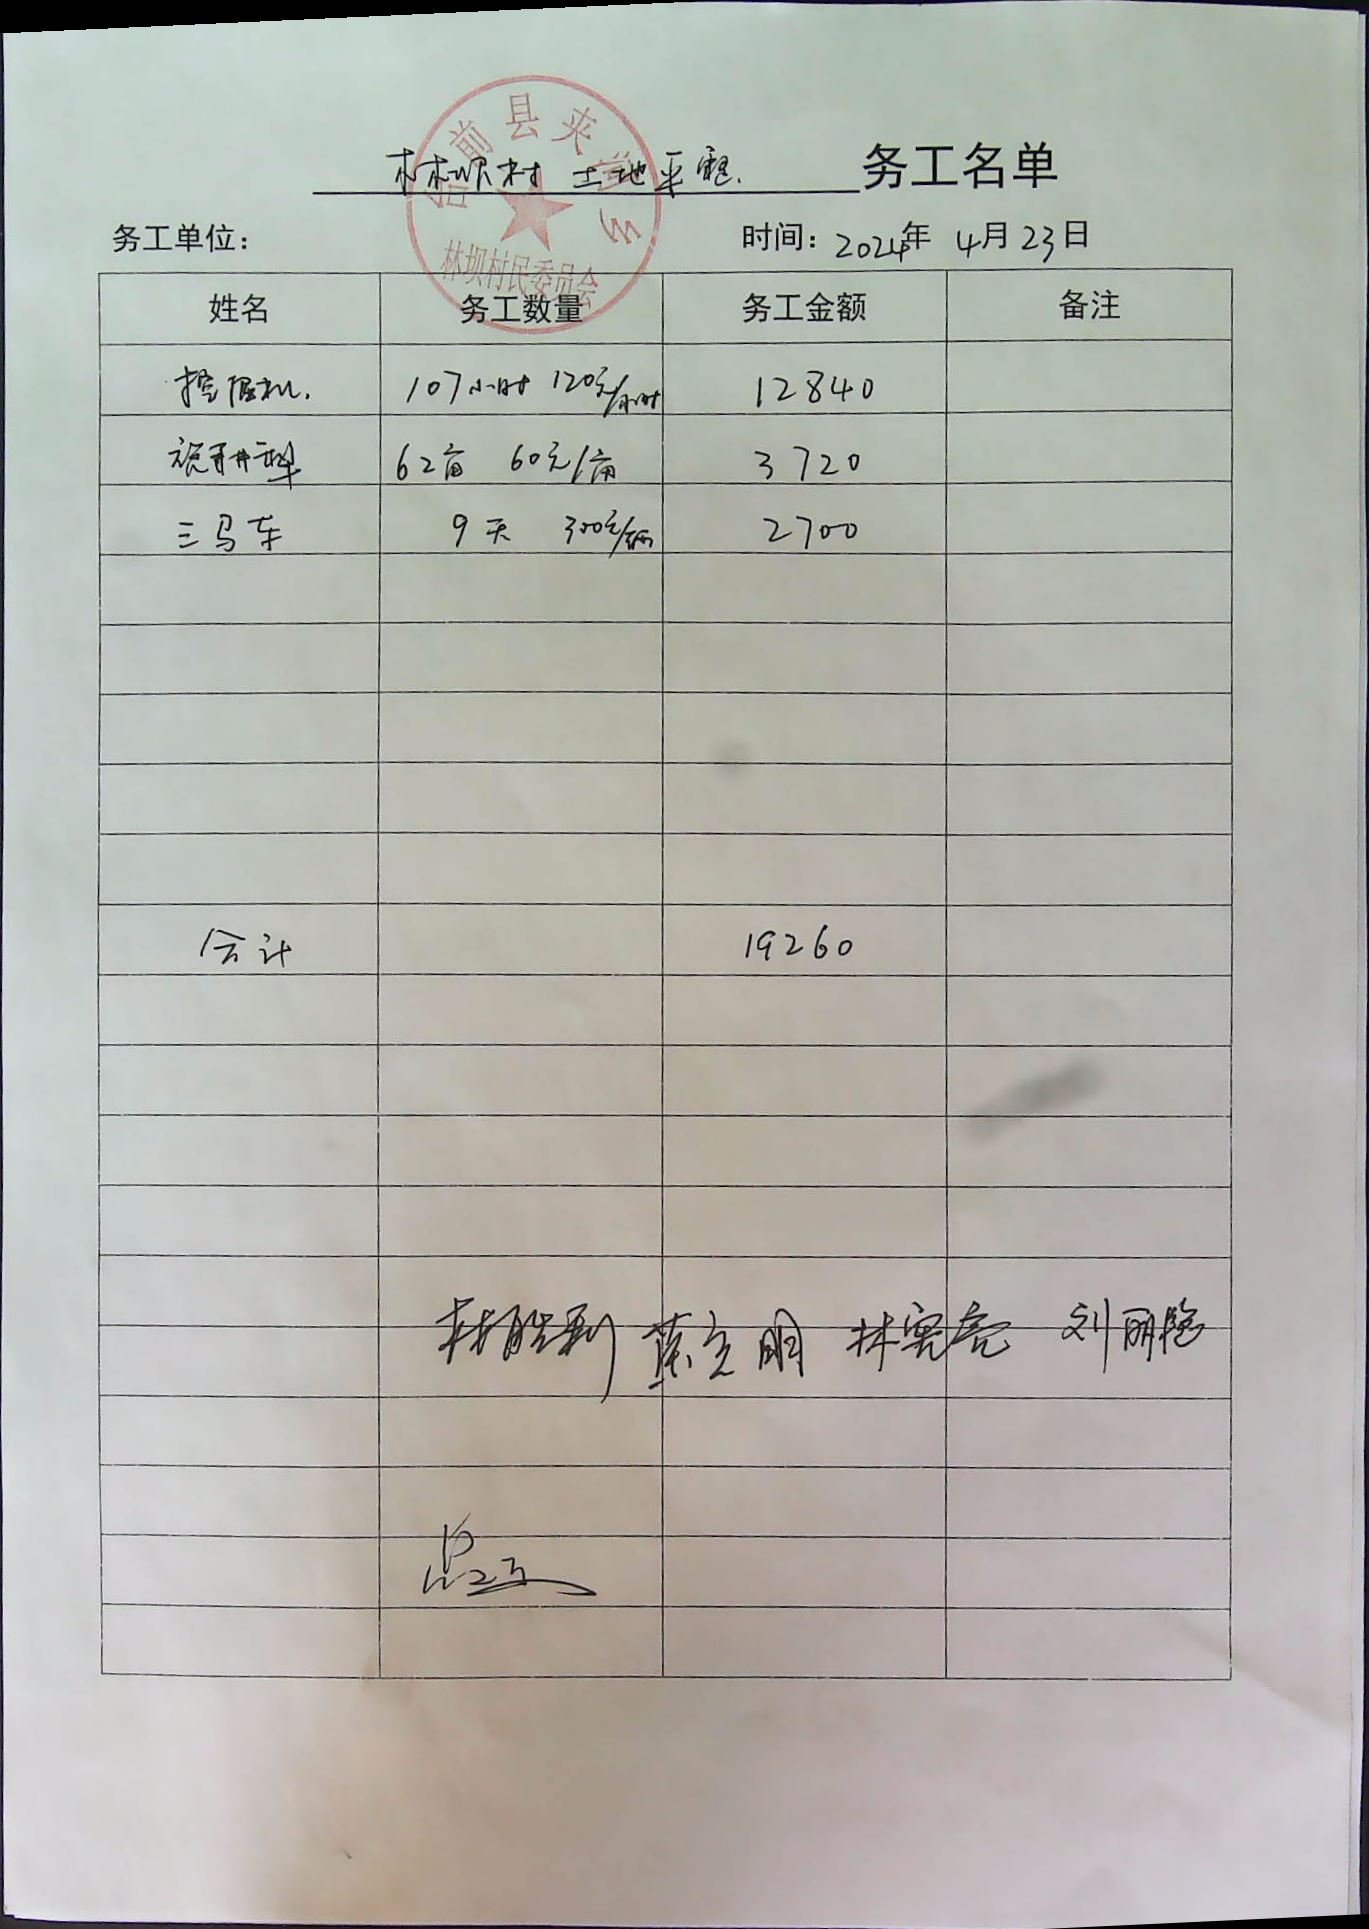 台前县夹河乡
林坝村 土地平整. 务工名单
林坝村民委员会
务工单位： 时间：2024年 4月23日
姓名 务工数量 务工金额 备注
挖掘机. 107小时 120元/小时 12840
旋耕犁 62亩 60元/亩 3720
三马车 9天 300元/辆 2700
合计 19260
林胜利 黄立明 林宪亮 刘丽艳